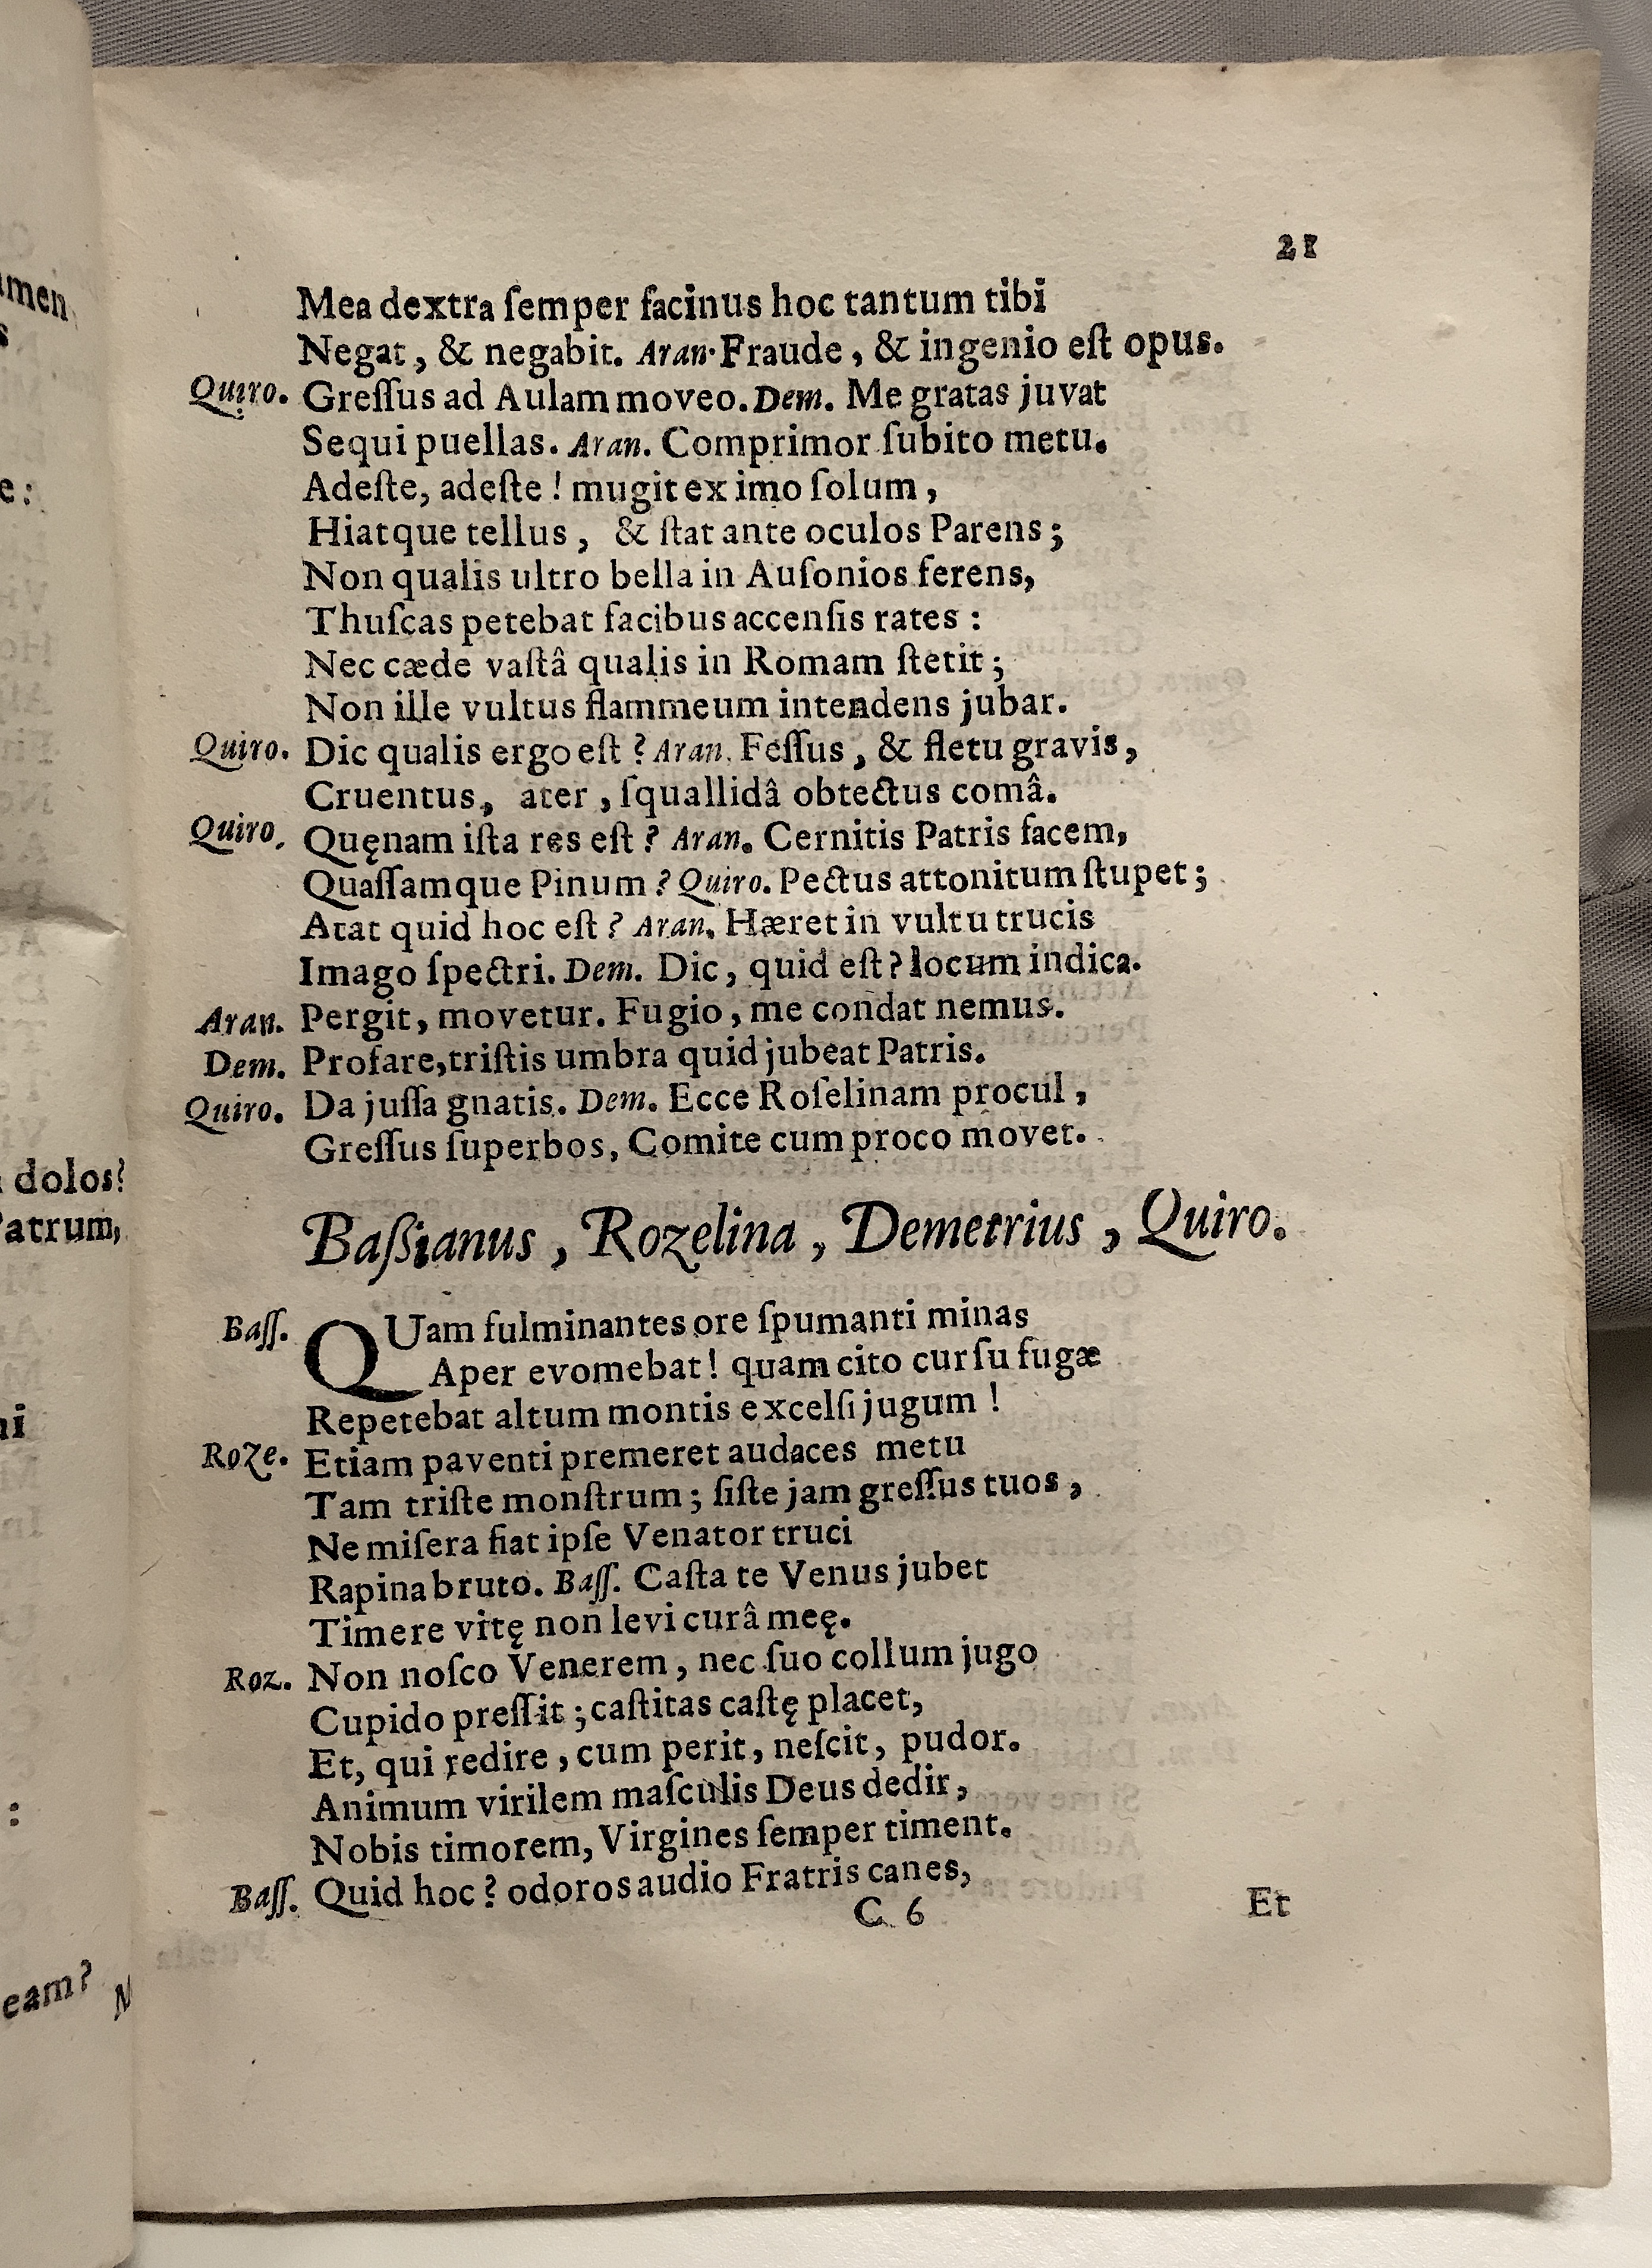 21
Mea dextra ſemper facinus hoc tantum tibi
Negat, & negabit. Aran. Fraude, & ingenio eſt opus.
Quiro. Greſſus ad Aulam moveo. Dem. Me gratas juvat
Sequi puellas. Aran. Comprimor ſubito metu.
Adeſte, adeſte! mugit ex imo ſolum,
Hiatque tellus, & ſtat ante oculos Parens;
Non qualis ultro bella in Auſonios ferens,
Thuſcas petebat facibus accenſis rates:
Nec cæde vaſtâ qualis in Romam ſtetit;
Non ille vultus flammeum intendens jubar.
Quiro. Dic qualis ergo eſt? Aran. Feſſus, & fletu gravis,
Cruentus, ater, ſquallidâ obtectus comâ.
Quiro. Quęnam iſta res eſt? Aran. Cernitis Patris facem,
Quaſſamque Pinum? Quiro. Pectus attonitum ſtupet;
Atat quid hoc eſt? Aran. Hæret in vultu trucis
Imago ſpectri. Dem. Dic, quid eſt? locum indica.
Aran. Pergit, movetur. Fugio, me condat nemus.
Dem. Profare, triſtis umbra quid jubeat Patris.
Quiro. Da juſſa gnatis. Dem. Ecce Roſelinam procul,
Greſſus ſuperbos, Comite cum proco movet.
Baßianus, Rozelina, Demetrius, Quiro.
Baſſ. QUam fulminantes ore ſpumanti minas
Aper evomebat! quam cito curſu fugæ
Repetebat altum montis excelſi jugum!
Roze. Etiam paventi premeret audaces metu
Tam triſte monſtrum; ſiſte jam greſſus tuos,
Ne miſera fiat ipſe Venator truci
Rapina bruto. Baſſ. Caſta te Venus jubet
Timere vitę non levi curâ meę.
Roz. Non noſco Venerem, nec ſuo collum jugo
Cupido preſſit; caſtitas caſtę placet,
Et, qui redire, cum perit, neſcit, pudor.
Animum virilem maſculis Deus dedit,
Nobis timorem, Virgines ſemper timent.
Baſſ. Quid hoc? odoros audio Fratris canes,
C 6
Et
dolos?
Patrum,
eam?